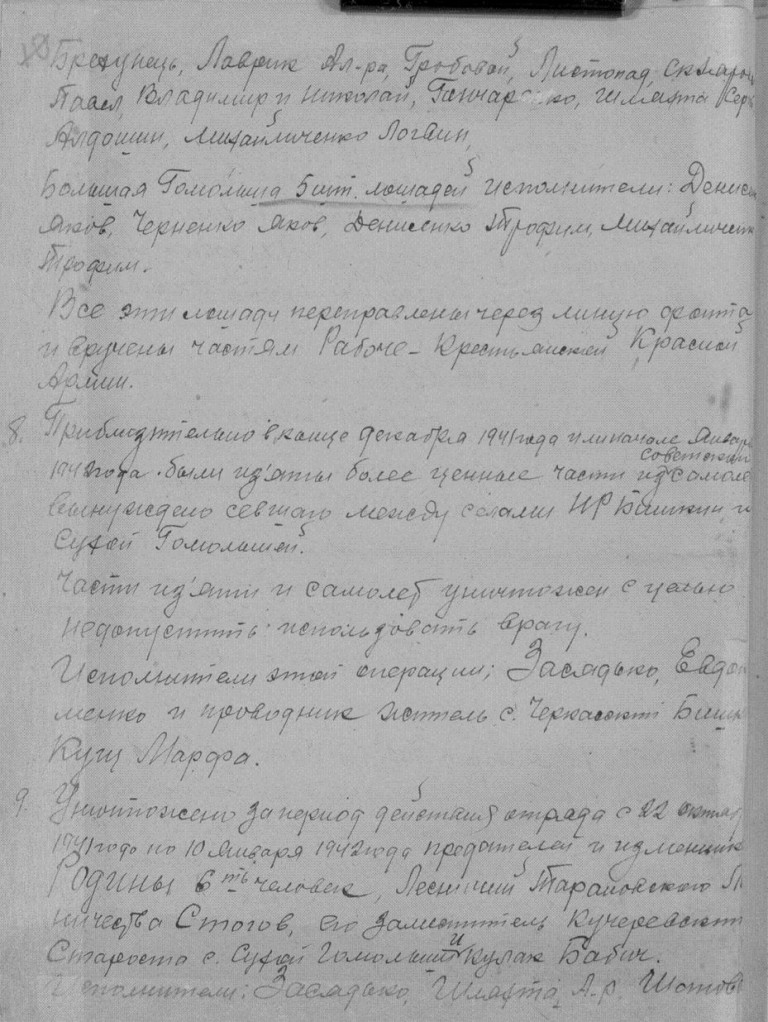 Брехунець, Лаврик Ал-ра, Гробовой, Листопад, Скляров
Павел, Владимир и Николай, Ганчаренко, Шляхта Сер
Алдошин, Михайличенко Логвин,
Большая Гомольша 5 шт. лошадей исполнители: Денисен
Яков, Черненко Яков, Денисенко Трофим, Михайличенк
Трофим.
Все эти лошади переправлены через линию фронта
и вручены частям Рабоче-Крестьянской Красной
Армии.
8. Приблизительно в конце декабря 1941 года или начале Января
советский
1942 года были из'яты более ценные части из самоле
вынуждено севшаго между селами ЧР Бишкин и
Сухой Гомольшей.
Части из'яти и самолет уничтожен с целью
недопустить использовать врагу.
Исполнители этой операции; Засядько, Евдо
менко и проводник житель с. Черкаский Бишк
Кущ Марфа.
9. Уничтожено за период действия отряда с 22 октяб
1941 года по 10 Января 1942 года предателей и изменник
Родины 6ть человек, Лесничий Тарановского Л
ничества Стогов, его заместитель Кучеревский
Староста с. Сухой Гомольши и кулак Бабич.
Исполнители: Засядько, Шляхта А-р,